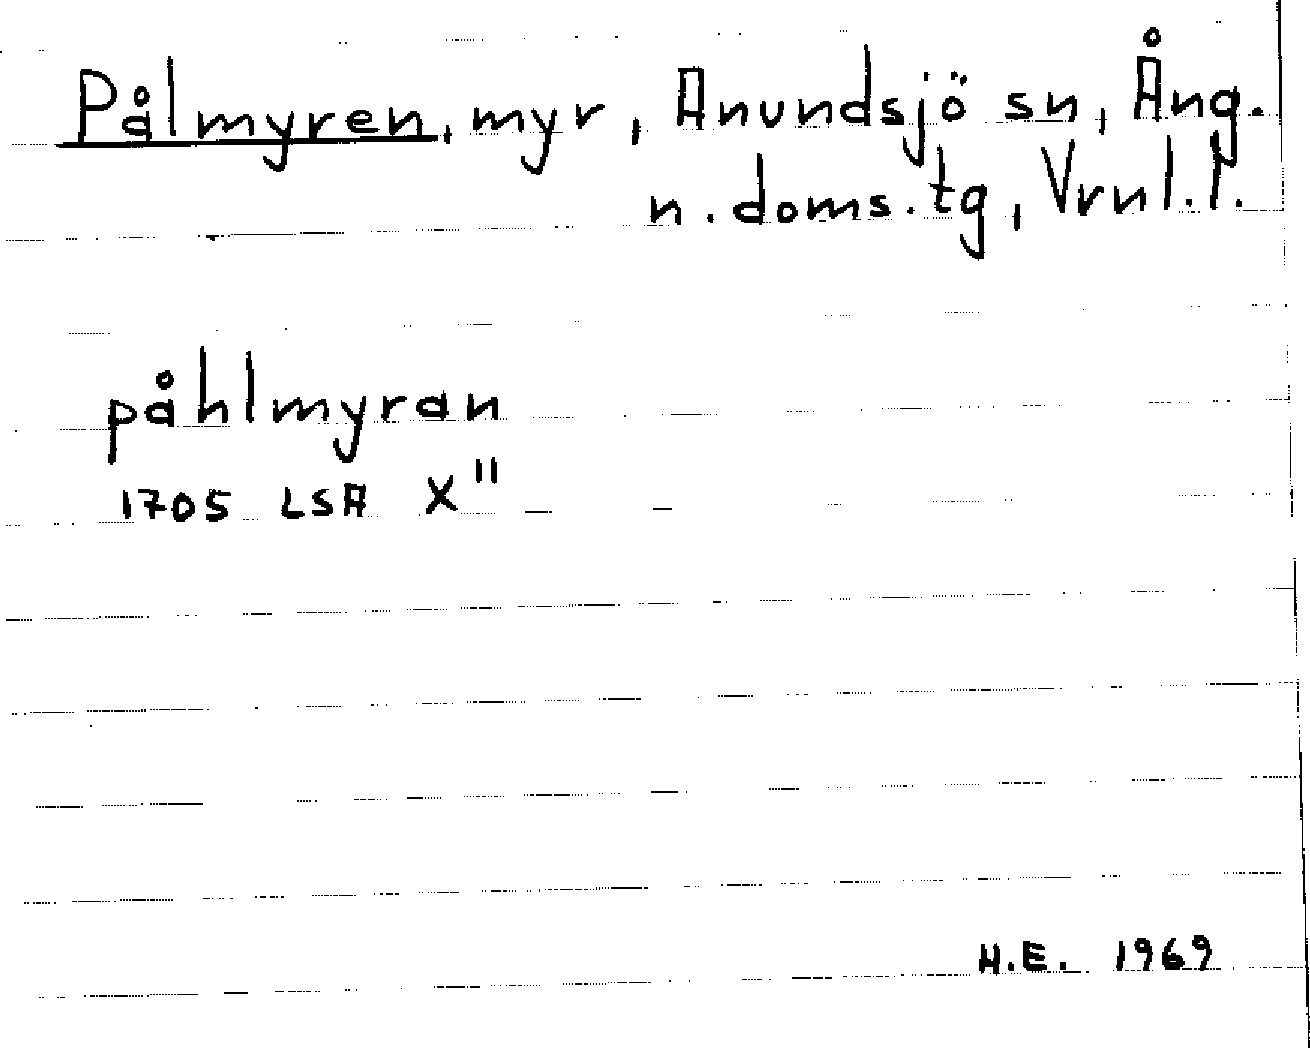 Pålmyren, myr, Anundsjö sn, Ång.
n. doms. tg, Vrnl. l.
påhlmyran
1705 LSA X"
H.E. 1969